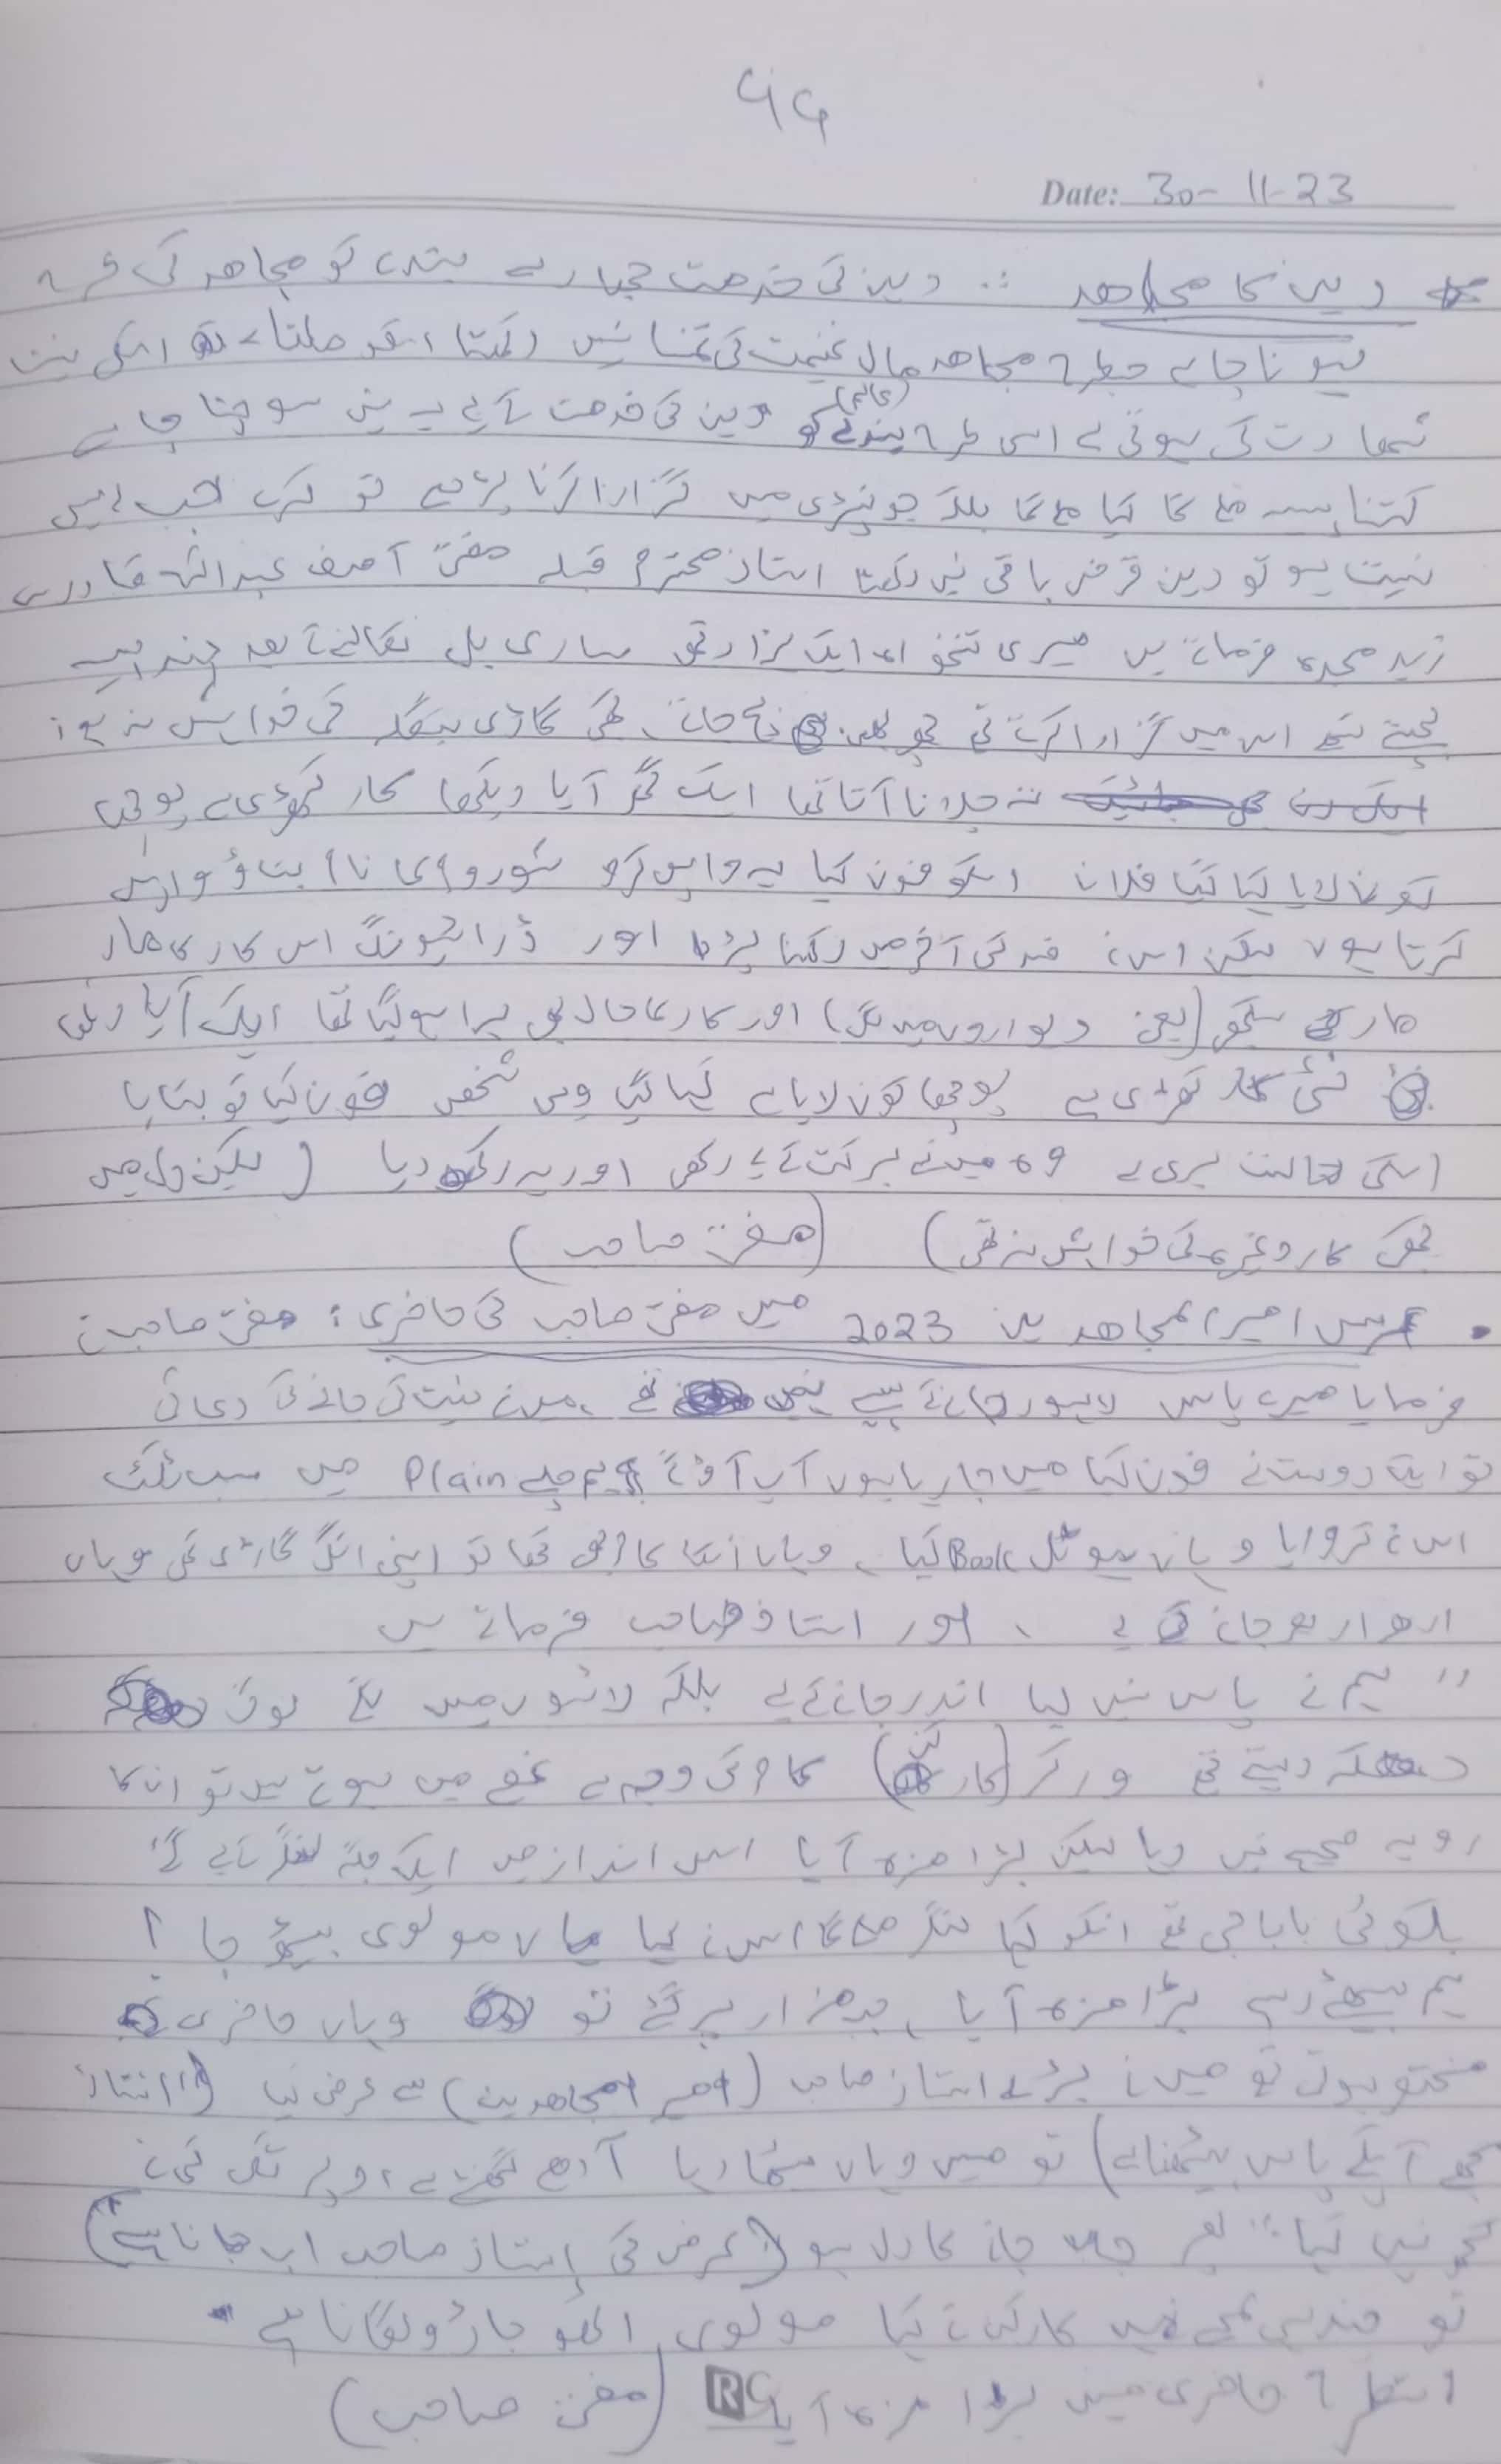 ۹۹
Date: 30-11-23
دین کا مجاھد :. دین کی خدمت بندے کو مجاھد کی طرح
ہونا چاہے جطرح مجاھد مال غنیمت کی تمنا نہیں رکھتا اسکو ملتا ہے اسکی نیت
شھادت کی ہوتی ہے اسی طرح بندے کو (عالم) دین کی خدمت کے لیے یہ نہیں سوچنا چاہے
کتنا پیسہ ملے گا کیا ملے گا بلکہ جونپڑی میں گزارا کرنا پڑھے تو کرے جب ایسی
نیت ہو تو دین قرض باقی نہیں رکھتا استاذ محترم قبلہ مفتی آصف عبداللہ قادری
زید مجدہ فرماتے ہیں میری تنخواہ ایک ہزار تھی ساری بل نکالنے کے بعد چند پیسے
بچتے تھے اس میں گزارا کرتے تھے کبھی گاڑی بنگلہ کی خواہش نہ ہوئی
نہ چلانا آتا تھا ایک گھر آیا دیکھا کار کھڑی ہے پوچھا
کون لایا کہا گیا فلاں اسکو فون کیا یہ واپس کرو شوروم کا نام بتاؤ واپس
کرتا ہوں لیکن اس نے ضد کی آخر میں رکھنا پڑا اور ڈرائیونگ اس کار کا مار
مار کے سیکھی (یعنی دیواروں میں لگی) اور کار کا حال بھی برا ہو گیا تھا ایک آیا دیکھا
نئی کار کھڑی ہے پوچھا کون لایا ہے کہا گیا وہی شخص فون کیا تو بتایا
اسکی حالت بری ہے وہ میں نے برکت کے لیے رکھی اور یہ رکھ دیا (لیکن دل میں
کبھی کار وغیرہ کی خواہش نہ تھی) (مفتی صاحب)
• عرس امیر المجاھدین 2023 میں مفتی صاحب کی حاضری : مفتی صاحب نے
فرمایا میرے پاس لاہور جانے کے پیسے نہیں تھے ، میں نے نیت کی جانے کی دعا کی
تو ایک دوست نے فون کیا میں جا رہا ہوں آپ آؤ گے ہم چلے Plain میں سب ٹکٹ
اس نے کروایا وہاں ہوٹل Book کیا ، وہاں انکا کام بھی تھا تو اپنی الگ گاڑی تھی وہاں
ادھر ادھر جانے کے لیے ، اور استاذ صاحب فرماتے ہیں
" ہم نے پاس نہیں لیا اندر جانے کے لیے بلکہ لائنوں میں لگے ہوئے
دھکے دیتے تھے ورکر (کارکن) کام کی وجہ سے غصے میں ہوتے ہیں تو ان کا
رویہ صحیح نہیں رہا لیکن بڑا مزہ آیا اسی انداز میں ایک جگہ لنگر کے لیے گے
بلکوئی باباجی تھے انکو کہا لنگر ملے گا اس نے کہا ہاں مولوی بیٹھ جا !
ہم بیٹھے رہے بڑا مزہ آیا ، پھر مزار پر گئے تو وہاں حاضری
مختصر ہوتی تھی میں نے بڑے استاذ صاحب (امیر المجاھدین) سے عرض کیا (استاذ
مجھے آپکے پاس بیٹھنا ہے) تو میں وہاں بیٹھا رہا آدھے گھنٹے سے اوپر تک کسی نے
کچھ نہیں کہا" پھر جب جانے کا دل ہوا عرض کی (استاذ صاحب اب جانا ہے)
تو چند ہی لمحے میں کارکن نے کہا مولوی اٹھو جاڑو لگانا ہے
اسطرح حاضری میں بڑا مزہ آیا (مفتی صاحب)